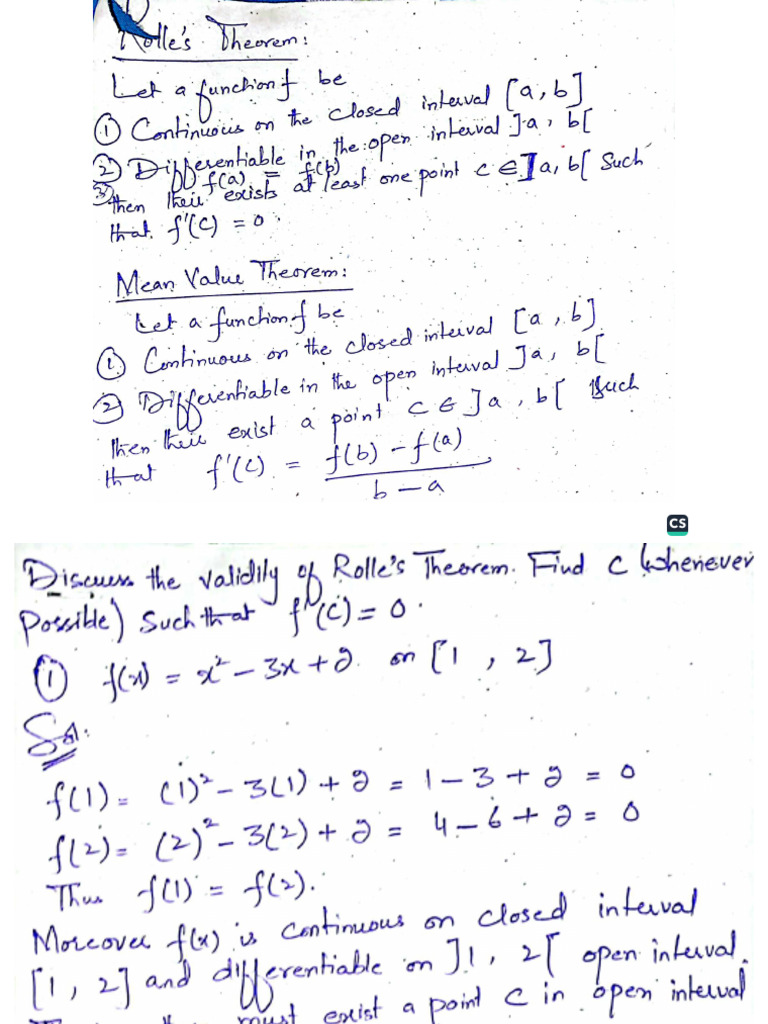 Rolle's Theorem:
Let a function f be
① Continuous on the closed interval [a, b]
② Differentiable in the open interval ]a, b[
③ f(a) = f(b)
then their exists at least one point c ∈ ]a, b[ Such
that f'(c) = 0.
Mean Value Theorem:
Let a function f be
① Continuous on the closed interval [a, b]
② Differentiable in the open interval ]a, b[
then their exist a point c ∈ ]a, b[ Such
that f'(c) = f(b) - f(a)
b - a
CS
Discuss the validity of Rolle's Theorem. Find c (whenever
Possible) Such that f'(c) = 0.
① f(x) = x² - 3x + 2 on [1, 2]
Sol:
f(1) = (1)² - 3(1) + 2 = 1 - 3 + 2 = 0
f(2) = (2)² - 3(2) + 2 = 4 - 6 + 2 = 0
Thus f(1) = f(2).
Moreover f(x) is continuous on closed interval
[1, 2] and differentiable on ]1, 2[ open interval.
must exist a point c in open interval